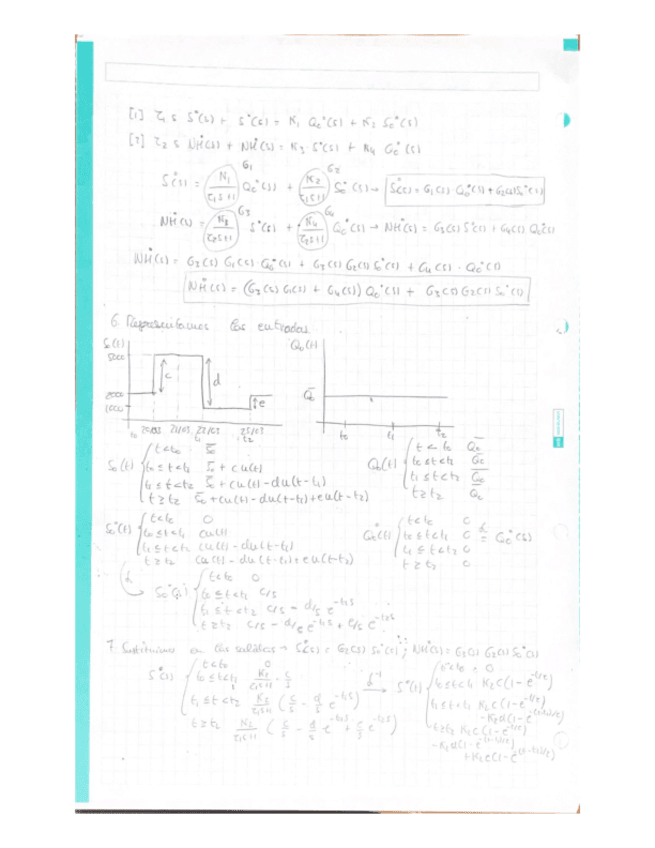 [1] τ₁ s S*(s) + S*(s) = K₁ Qc*(s) + K₂ So*(s)
[2] τ₂ s NH*(s) + NH*(s) = K₃ S*(s) + K₄ Qc*(s)
S*(s) = K₁/(τ₁s+1) Qc*(s) + K₂/(τ₁s+1) So*(s) → S*(s) = G₁(s) Qc*(s) + G₂(s) So*(s)
G₁ G₂
NH*(s) = K₃/(τ₂s+1) S*(s) + K₄/(τ₂s+1) Qc*(s) → NH*(s) = G₃(s) S*(s) + G₄(s) Qc*(s)
G₃ G₄
NH*(s) = G₃(s) G₁(s) Qc*(s) + G₃(s) G₂(s) So*(s) + G₄(s) · Qc*(s)
NH*(s) = (G₃(s) G₁(s) + G₄(s)) Qc*(s) + G₃(s) G₂(s) So*(s)
6. Representamos las entradas
So(t)
5000
2000
1000
c d e
t₀ t₁ t₂
t₀ t₁ t₂
So(t) t<t₀ So
t₀≤t<t₁ So + cu(t)
t₁≤t<t₂ So + cu(t) - du(t-t₁)
t≥t₂ So + cu(t) - du(t-t₁) + eu(t-t₂)
t<t₀ Qc
t₀≤t<t₁ Qc
t₁≤t<t₂ Qc
t≥t₂ Qc
So*(t) t<t₀ 0
t₀≤t<t₁ cu(t)
t₁≤t<t₂ cu(t) - du(t-t₁)
t≥t₂ cu(t) - du(t-t₁) + eu(t-t₂)
Qc*(t) t<t₀ 0
t₀≤t<t₁ 0 = Qc*(s)
t₁≤t<t₂ 0
t≥t₂ 0
So*(s) t<t₀ 0
t₀≤t<t₁ c/s
t₁≤t<t₂ c/s - d/s e^(-t₁s)
t≥t₂ c/s - d/s e^(-t₁s) + e/s e^(-t₂s)
7. Sustituimos en las salidas → S*(s) = G₂(s) So*(s) ; NH*(s) = G₃(s) G₂(s) So*(s)
S*(s) t<t₀ 0
t₀≤t<t₁ K₂/(τ₁s+1) · c/s
t₁≤t<t₂ K₂/(τ₁s+1) (c/s - d/s e^(-t₁s))
t≥t₂ K₂/(τ₁s+1) (c/s - d/s e^(-t₁s) + e/s e^(-t₂s))
S*(t) t<t₀ 0
t₀≤t<t₁ K₂c(1-e^(-t/τ))
t₁≤t<t₂ K₂c(1-e^(-t/τ))
t≥t₂ K₂c(1-e^(-t/τ))